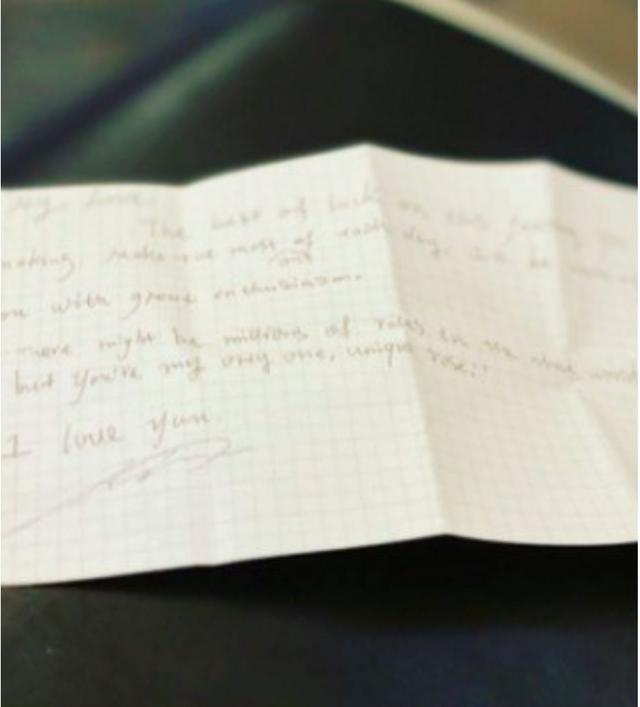 my love
The best of luck on this journey you
making. Make the most of each day.
and
on with great enthusiasm.
there might be millions of roses in the whole world
but you're my only one, unique rose."
I love you.